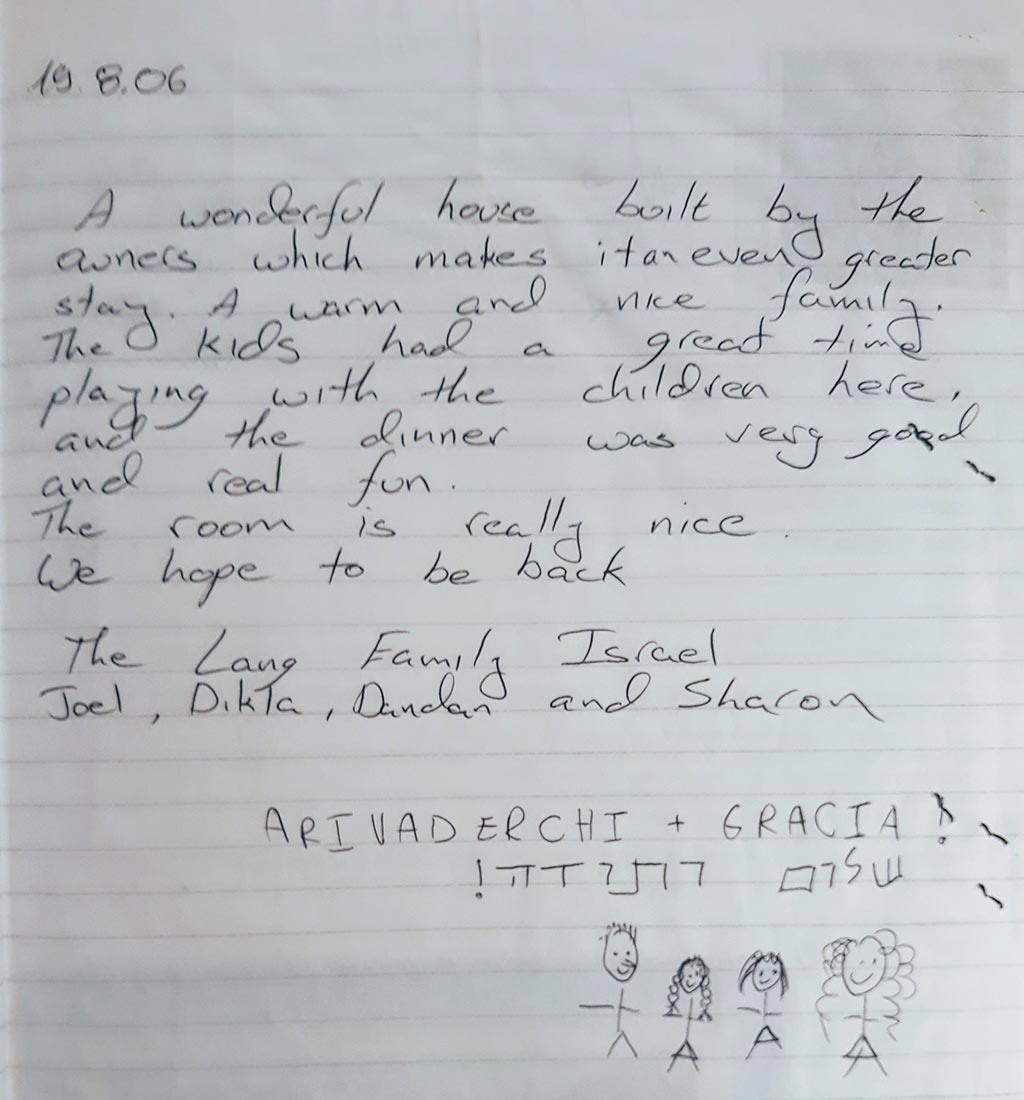 19.8.06
A wonderful house built by the
owners which makes it an even greater
stay. A warm and nice family.
The kids had a great time
playing with the children here,
and the dinner was very good
and real fun.
The room is really nice.
We hope to be back
The Lang Family Israel
Joel, Dikla, Dandan and Sharon
ARIVADERCHI + GRACIA !
שלום ותודה!